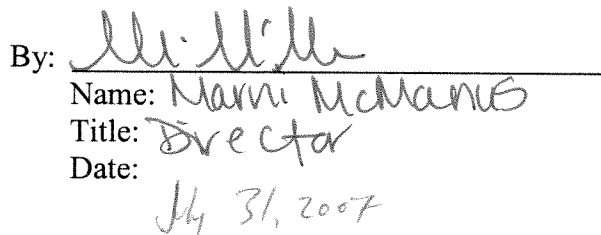 By:
Name: Marni McManus
Title: Director
Date:
July 31, 2007